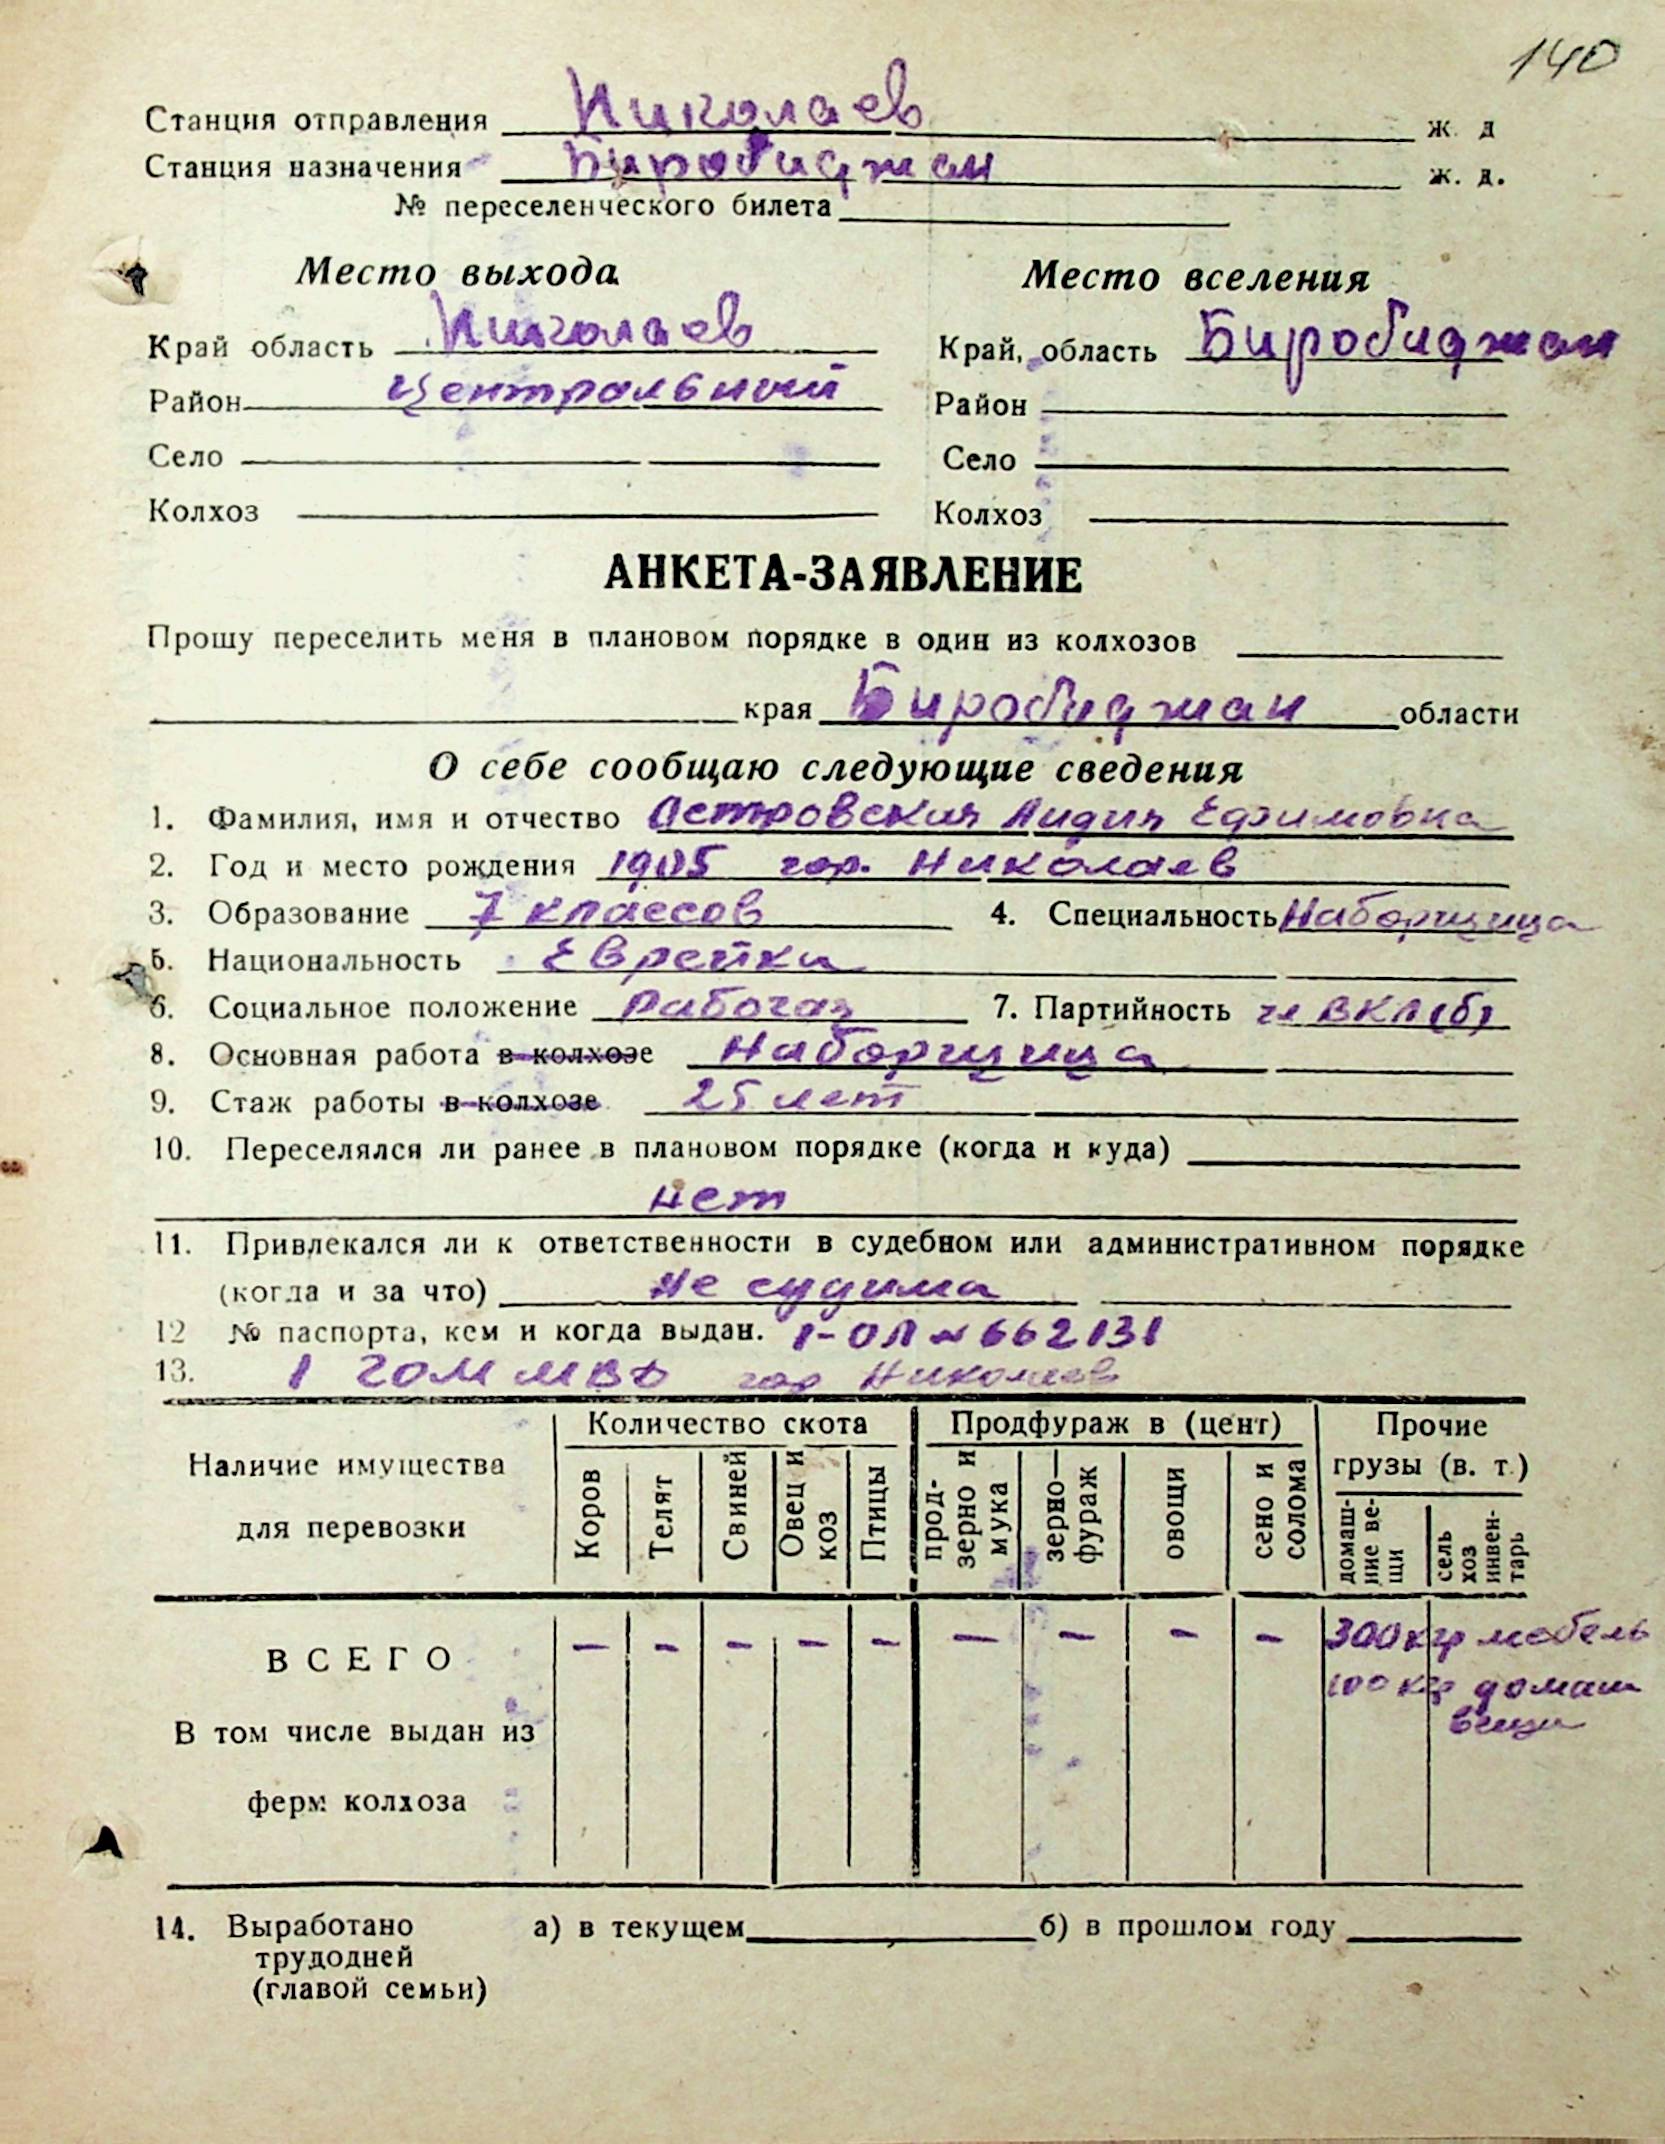 140
Станция отправления Николаев ж. д
Станция назначения Биробиджан ж. д.
№ переселенческого билета
Место выхода Место вселения
Край область Николаев Край, область Биробиджан
Район Центральный Район
Село Село
Колхоз Колхоз
АНКЕТА-ЗАЯВЛЕНИЕ
Прошу переселить меня в плановом порядке в один из колхозов
края Биробиджан области
О себе сообщаю следующие сведения
1. Фамилия, имя и отчество Островская Лидия Ефимовна
2. Год и место рождения 1905 гор. Николаев
3. Образование 7 классов 4. Специальность Наборщица
5. Национальность Еврейка
6. Социальное положение Рабочая 7. Партийность чл ВКП(б)
8. Основная работа в колхозе Наборщица
9. Стаж работы в колхозе 25 лет
10. Переселялся ли ранее в плановом порядке (когда и куда)
нет
11. Привлекался ли к ответственности в судебном или административном порядке
(когда и за что) не судима
12 № паспорта, кем и когда выдан. 1-ОЛ № 662131
13. 1 ГОМ МВД гор Николаев
Наличие имущества для перевозки
Количество скота Продфураж в (цент) Прочие грузы (в. т.)
Коров Телят Свиней Овец и коз Птицы прод-зерно и мука зерно-фураж овощи сено и солома домаш-ние ве-щи сель хоз инвен-тарь
ВСЕГО – – – – – – – – – 300 кгр мебель
100 кгр домаш
вещи
В том числе выдан из
ферм колхоза
14. Выработано а) в текущем б) в прошлом году
трудодней
(главой семьи)